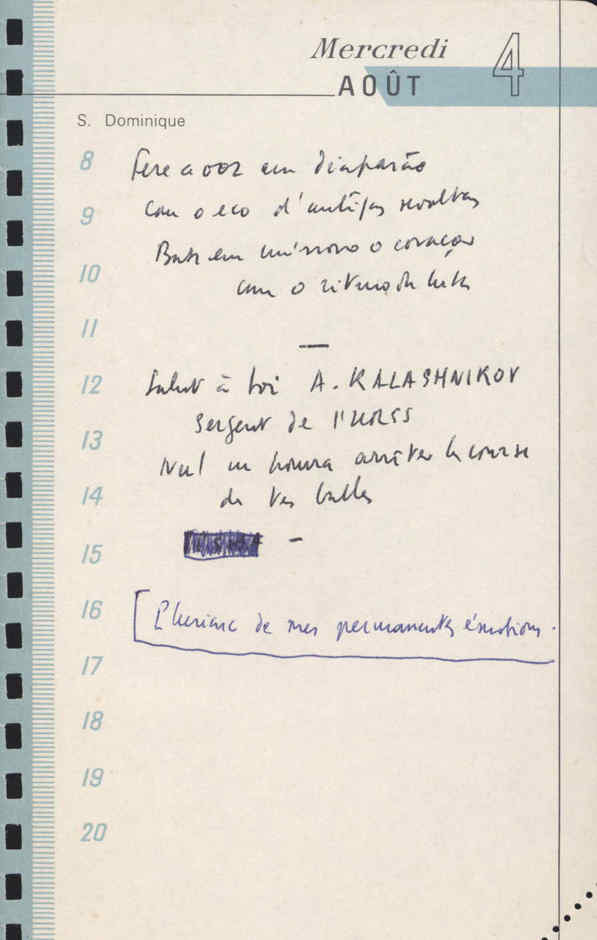 Mercredi 4
AOÛT
S. Dominique
8 Fere a voz em diapasão
9 Com o eco d'antigas revoltas
Bate em uníssono o coração
10 com o ritmo da luta
11 —
12 Salut à toi A. KALASHNIKOV
13 Sergent de l'URSS
Nul ne pourra arrêter la course
14 de tes balles
15 –
16 de mes permanentes émotions.
17
18
19
20